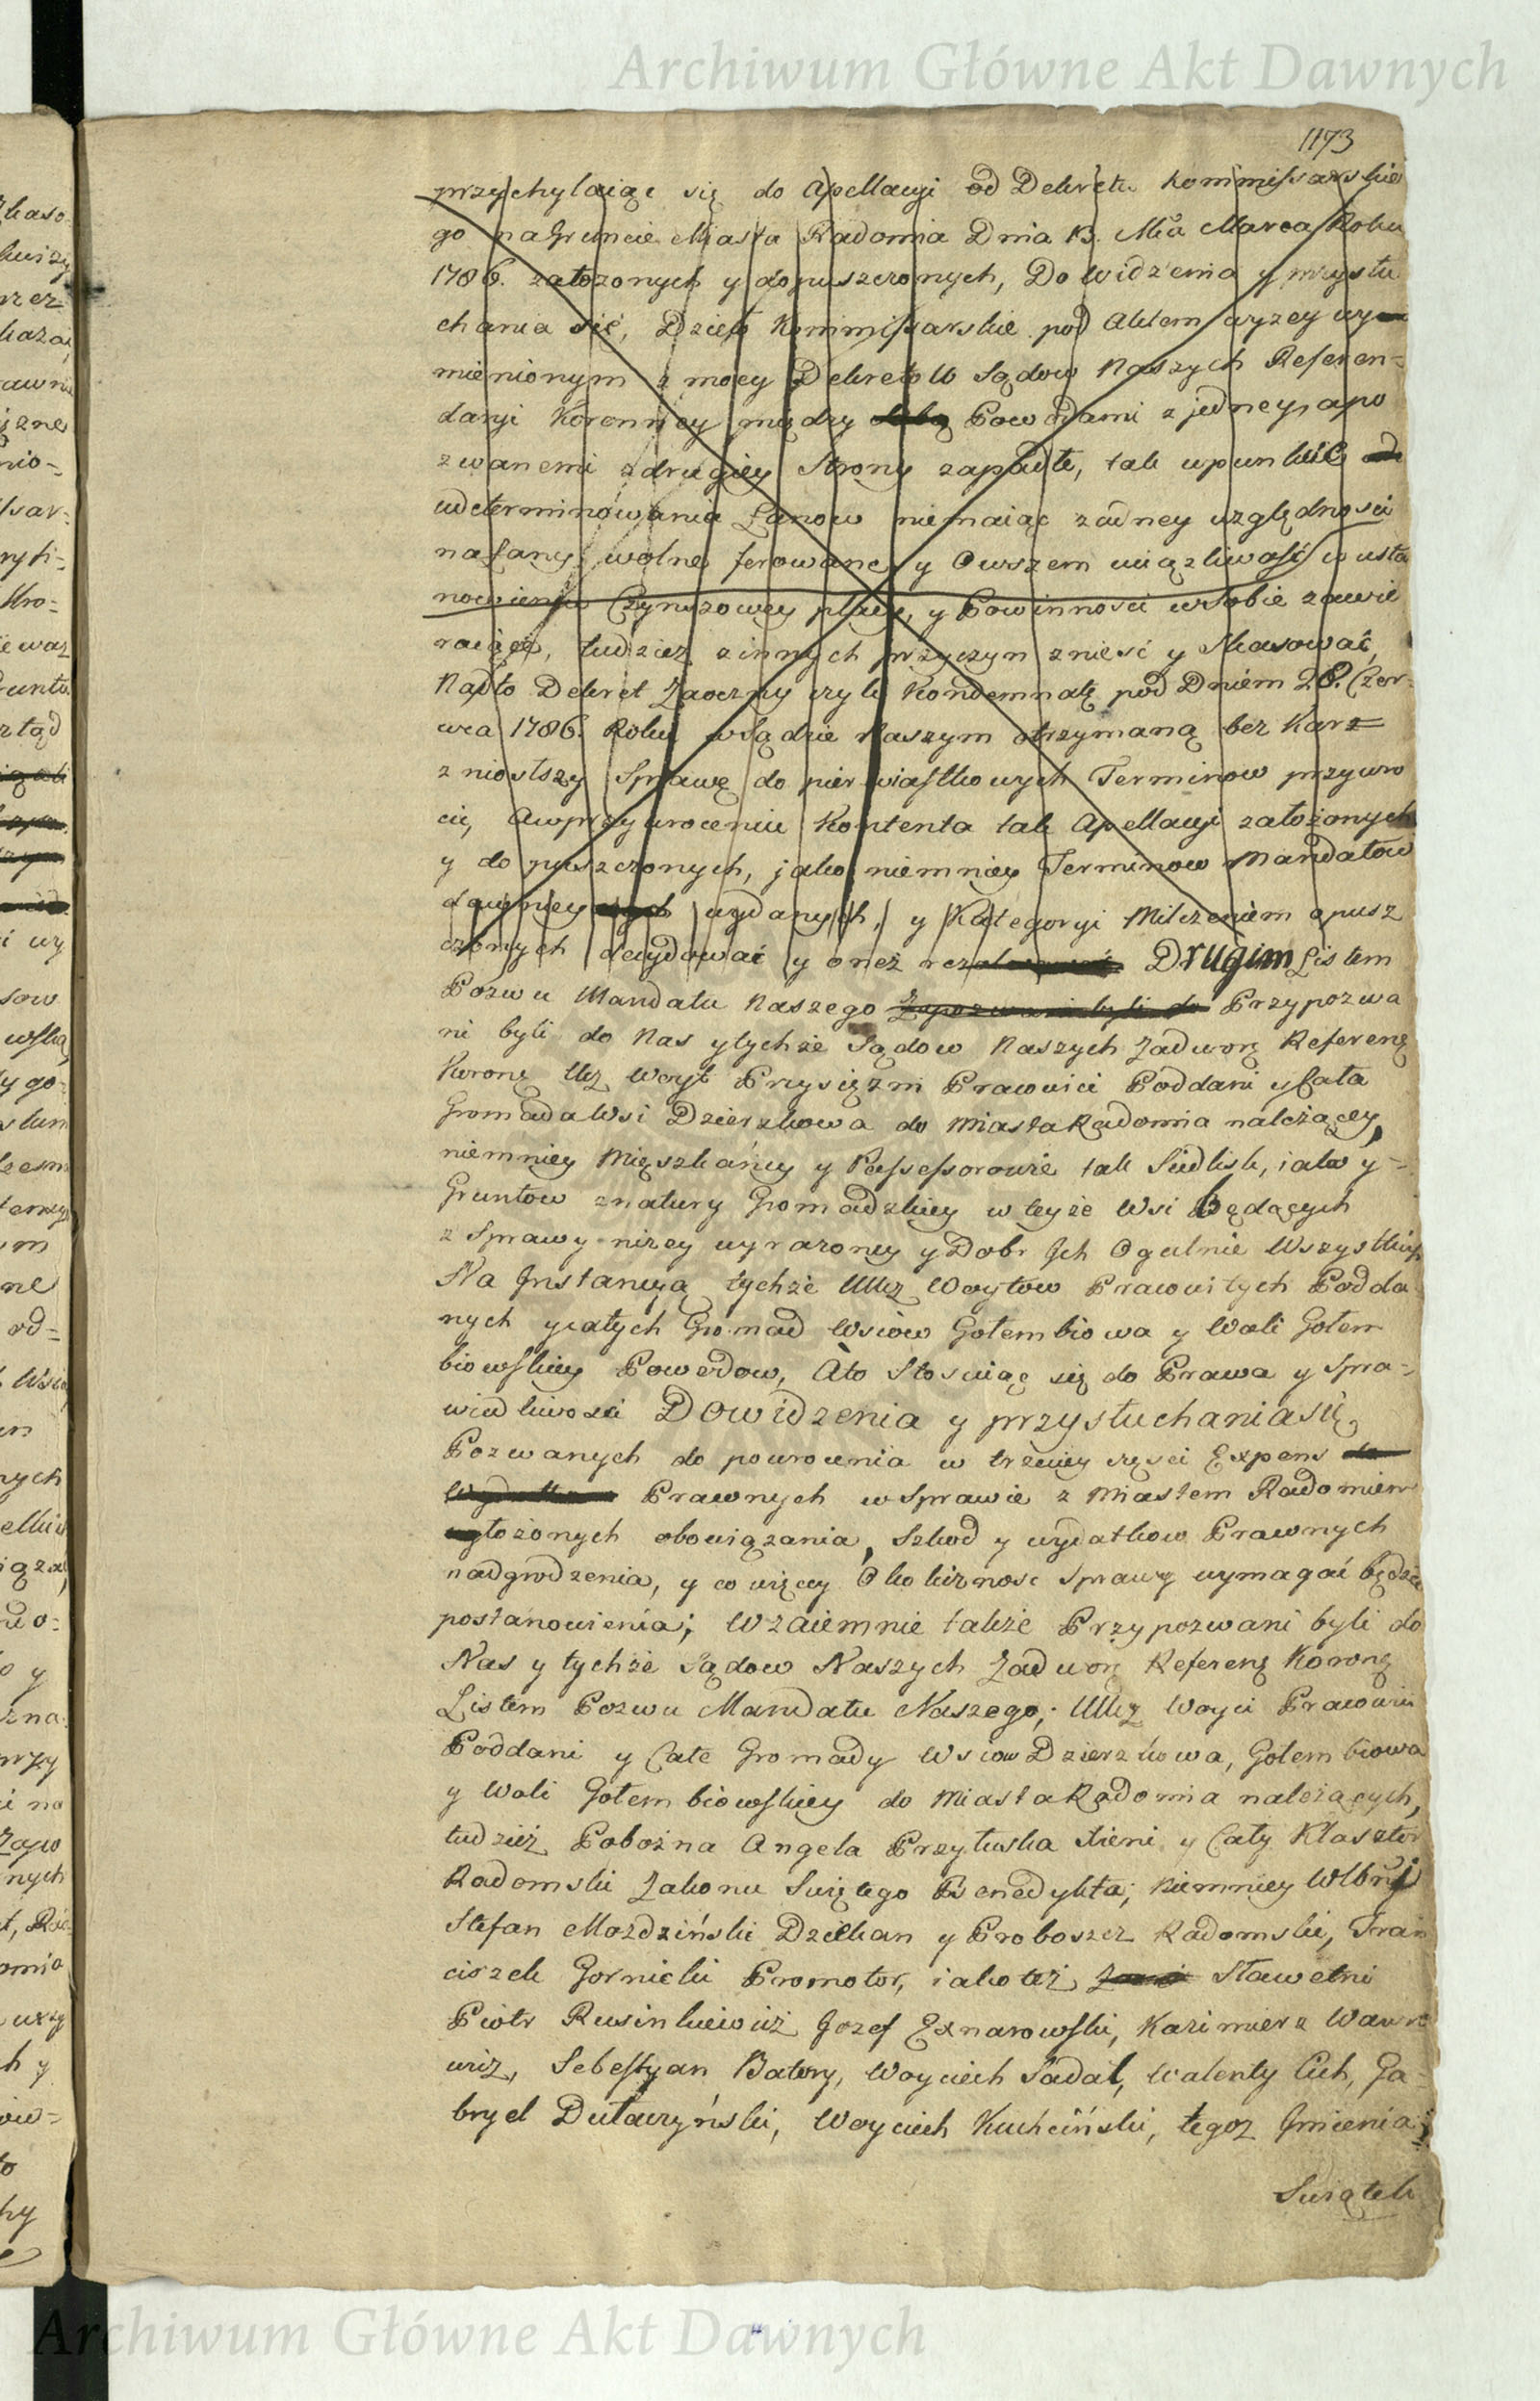 Archiwum Główne Akt Dawnych
1173
przychylaiąc się do Apellacyi od Dekretu Kommissarskie
go na Gruncie Miasta Radomia Dnia 13. Mca Marca Roku
1786. założonych y dopuszczonych, Do widzenia y przysłu
chania się, Dzieło Kommissarskie pod Aktem wyzey wy
mienionym z mocy Dekretow Sądow Naszych Referen=
daryi Koronney między Powodami z jedney, a po
zwanemi z drugiey Strony zapadłe, tak w punkcie
udeterminowania Łanow niemaiąc żadney względności
na Łany wolne ferowane, y Owszem uciążliwość w usta
nowieniu Czynszowey płacy, y Powinności w sobie zawie
raiące, tudzież z innych przyczyn znieść y Skasować,
Nadto Dekret Zaoczny czyli Kondemnatę pod Dniem 28. Czer=
wca 1786. Roku w Sądzie Naszym otrzymaną bez Kar
zniosłszy Sprawę do pierwiastkowych Terminow przywro
cić, A w przywroceniu Kontenta tak Apellacyi założonych
y dopuszczonych, jako niemniey Terminow Mandatow
dawniey wydanych, y Kategoryi Milczeniem opusz
czonych decydować y oneż Drugim Listem
Pozwu Mandatu Naszego Zapozwani byli do Przypozwa
ni byli do Nas y tychże Sądow Naszych Zadworę Referenę
Koronę Ucz Woyt Przysiężni Pracowici Poddani y Cała
Gromada Wsi Dzierzkowa do Miasta Radomia należącey,
niemniey Mięszkańcy y Possessorowie tak Siedlisk, iako y=
Gruntow z natury Gromadzkiey w teyże Wsi będących
z Sprawy niżey wyrazoney y Dobr Jch Ogulnie Wszystkich
Na Jnstancyą tychże UUcz Woytow Pracowitych Podda
nych y całych Gromad Wsiow Gołembiowa y Woli Gołem
biowskiey Powodow, Ato Stosuiąc się do Prawa y Spra=
wiedliwości Dowidzenia y przysłuchania się
Pozwanych do powrocenia w trzeciey częsci Expens
Prawnych w Sprawie z Miastem Radomiem
łożonych obowiązania, Szkod y wydatkow Prawnych
nadgrodzenia, y co więcey Okoliczność Sprawy wymagać będzie
postanowienia; Wzaiemnie także Przypozwani byli do
Nas y tychże Sądow Naszych Zadworę Referenę Koronę
Listem Pozwu Mandatu Naszego; UUcz Woyci Pracowici
Poddani y Całe Gromady Wsiow Dzierzkowa, Gołembiowa
y Woli Gołembiowskiey do Miasta Radomia należących,
tudzież Pobożna Angela Przyłuska Xieni y Cały Klasztor
Radomski Zakonu Swiętego Benedykta; niemniey Wlbni
Stefan Mozdziński Dziekan y Proboszcz Radomski, Fran
ciszek Gornicki Promotor, iako też Sławetni
Piotr Rusinkiewicz Jozef Exnarowski, Kazimierz Wawrz
wicz, Sebestyan Batory, Woyciech Sadal, Walenty Cich, Ga=
bryel Dutaczyński, Woyciech Kuchciński, tegoz Jmienia
Swiątek
Archiwum Główne Akt Dawnych